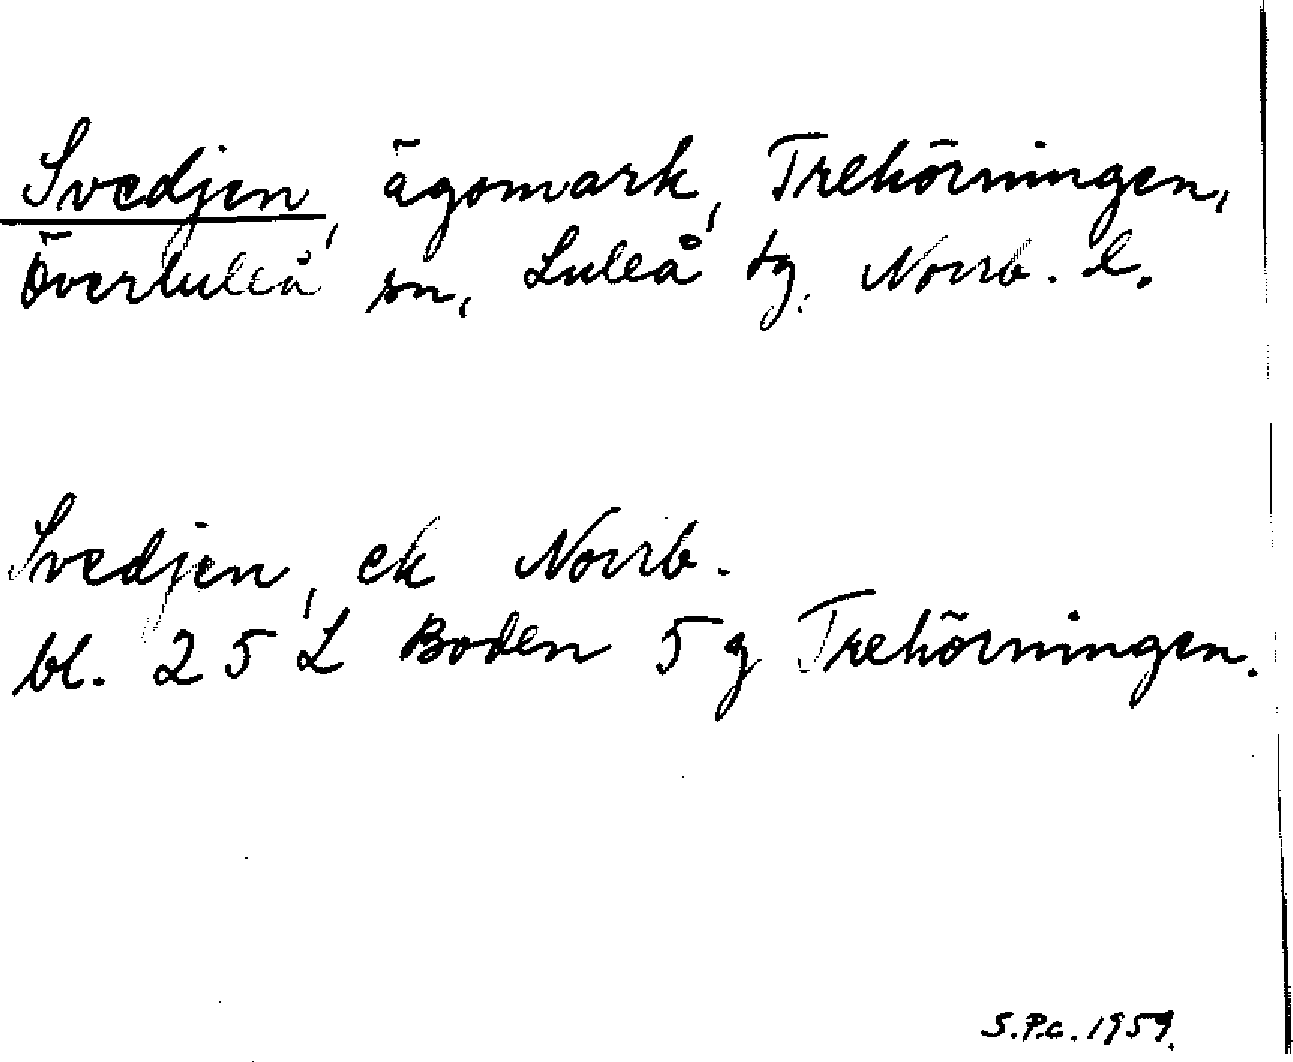 Svedjen, ägomark, Trehörningen,
Överluleå sn, Luleå tg, Norrb. l.
Svedjen, ek Norrb.
bl. 25 L Boden 5 g Trehörningen.
S.P.c. 1959.